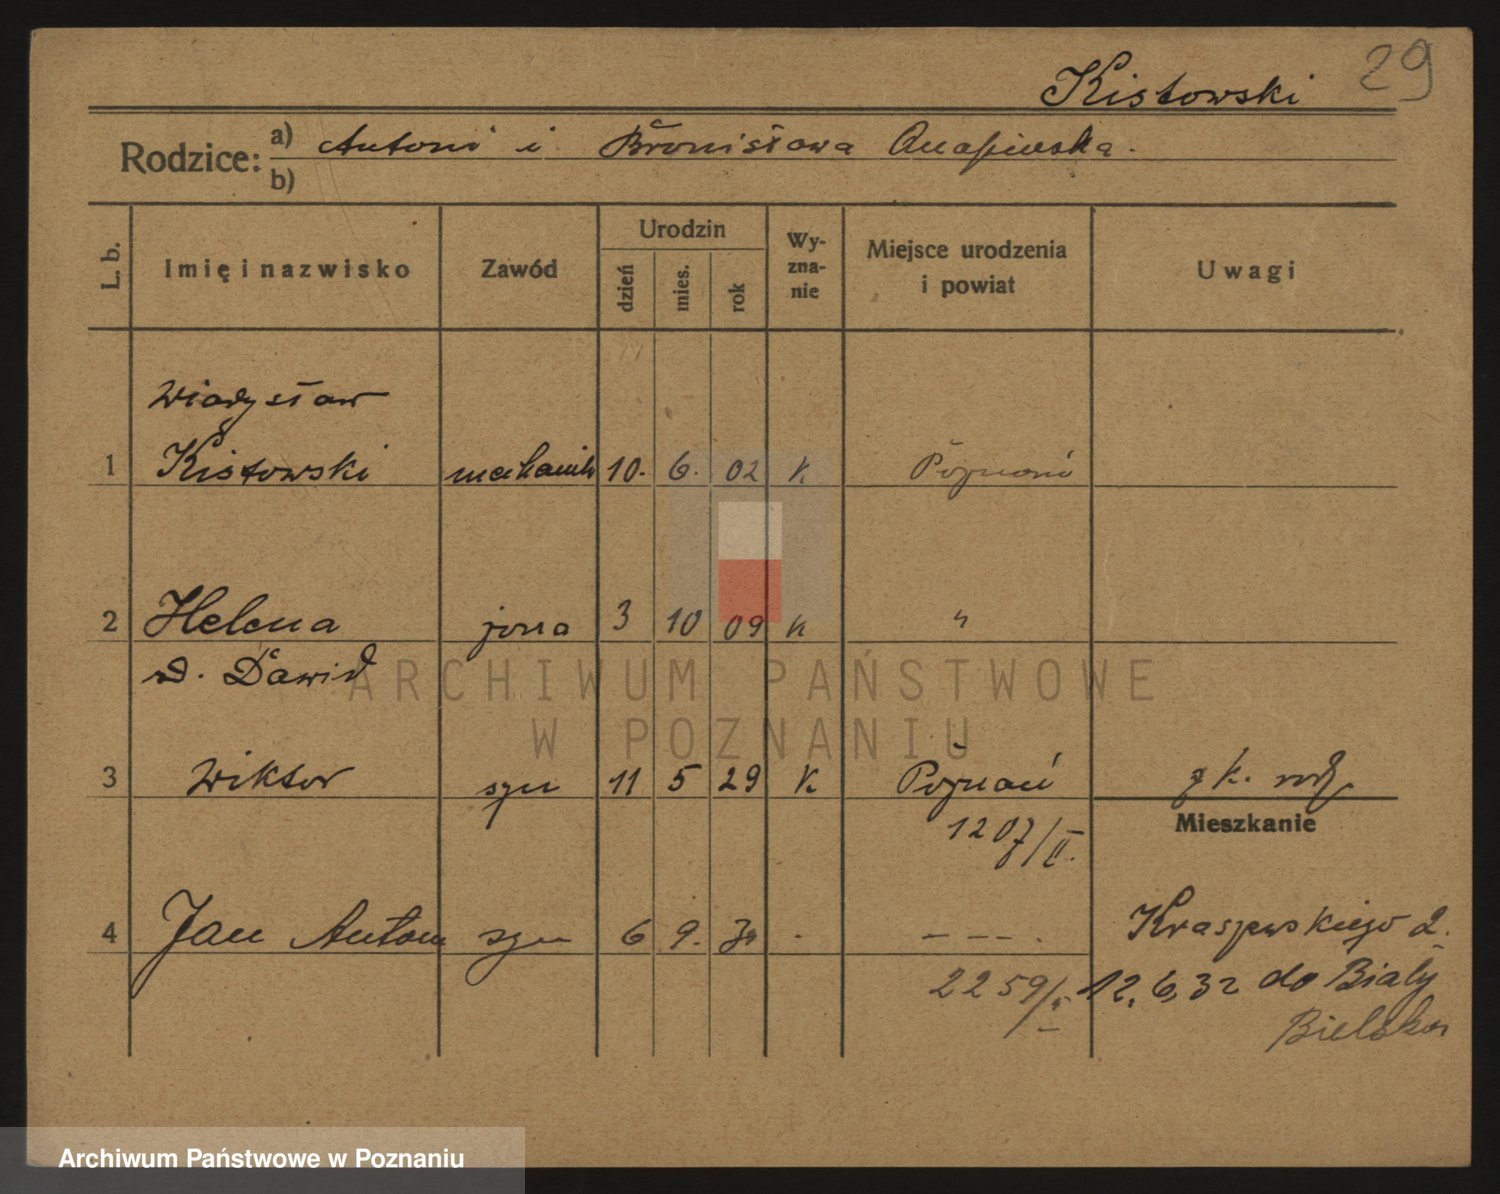 Kistowski 29
Rodzice: a) Antoni i Bronisława
b)
L. b. Imię i nazwisko Zawód Urodzin dzień mies. rok Wy-zna-nie Miejsce urodzenia i powiat Uwagi
Władysław
1 Kistowski mechanik 10. 6. 02 K Poznań
2 Helena żona 3 10 09 K "
D. Dawid
3 Wiktor syn 11 5 29 K Poznań
Mieszkanie
1207/II.
4 Jan Antoni syn 6 9. - - - - . Kraszewskiego 2.
2259/ 12.6.32 do Biały
ARCHIWUM PAŃSTWOWE
W POZNANIU
Archiwum Państwowe w Poznaniu